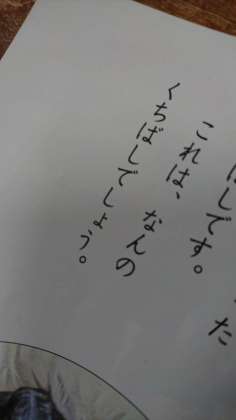 た
しです。
これは、なんの
くちばしでしょう。